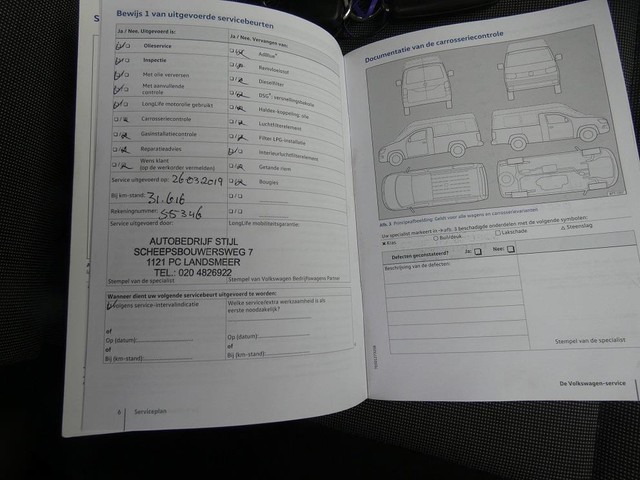 Bewijs 1 van uitgevoerde servicebeurten
Ja / Nee. Uitgevoerd is:
Ja / Nee. Vervangen van:
Olieservice
AdBlue®
Inspectie
Remvloeistof
Met olie verversen
Dieselfilter
Met aanvullende controle
DSG®, versnellingsbakolie
LongLife motorolie gebruikt
Haldex-koppeling, olie
Carrosseriecontrole
Luchtfilterelement
Gasinstallatiecontrole
Filter LPG-installatie
Reparatieadvies
Interieurluchtfilterelement
Wens klant
(op de werkorder vermelden)
Getande riem
Service uitgevoerd op: 26.03.2019
Bougies
Bij km-stand: 31.616
Rekeningnummer: 55346
Service uitgevoerd door:
LongLife mobiliteitsgarantie:
AUTOBEDRIJF STIJL
SCHEEPSBOUWERSWEG 7
1121 PC LANDSMEER
TEL.: 020 4826922
Stempel van de specialist
Stempel van Volkswagen Bedrijfswagens Partner
Wanneer dient uw volgende servicebeurt uitgevoerd te worden:
Volgens service-intervalindicatie
Welke service/extra werkzaamheid is als eerste noodzakelijk?
of
Op (datum):
Op (datum):
of
of
Bij (km-stand):
Bij (km-stand):
6 Serviceplan
Documentatie van de carrosseriecontrole
Afb. 3 Principeafbeelding: Geldt voor alle wagens en carrosserievormen
Uw specialist markeert in ›Afb. 3 beschadigde onderdelen met de volgende symbolen:
Kras
Buil/deuk
Lakschade
Steenslag
Defecten geconstateerd? Ja: Nee:
Beschrijving van de defecten:
Stempel van de specialist
De Volkswagen-service